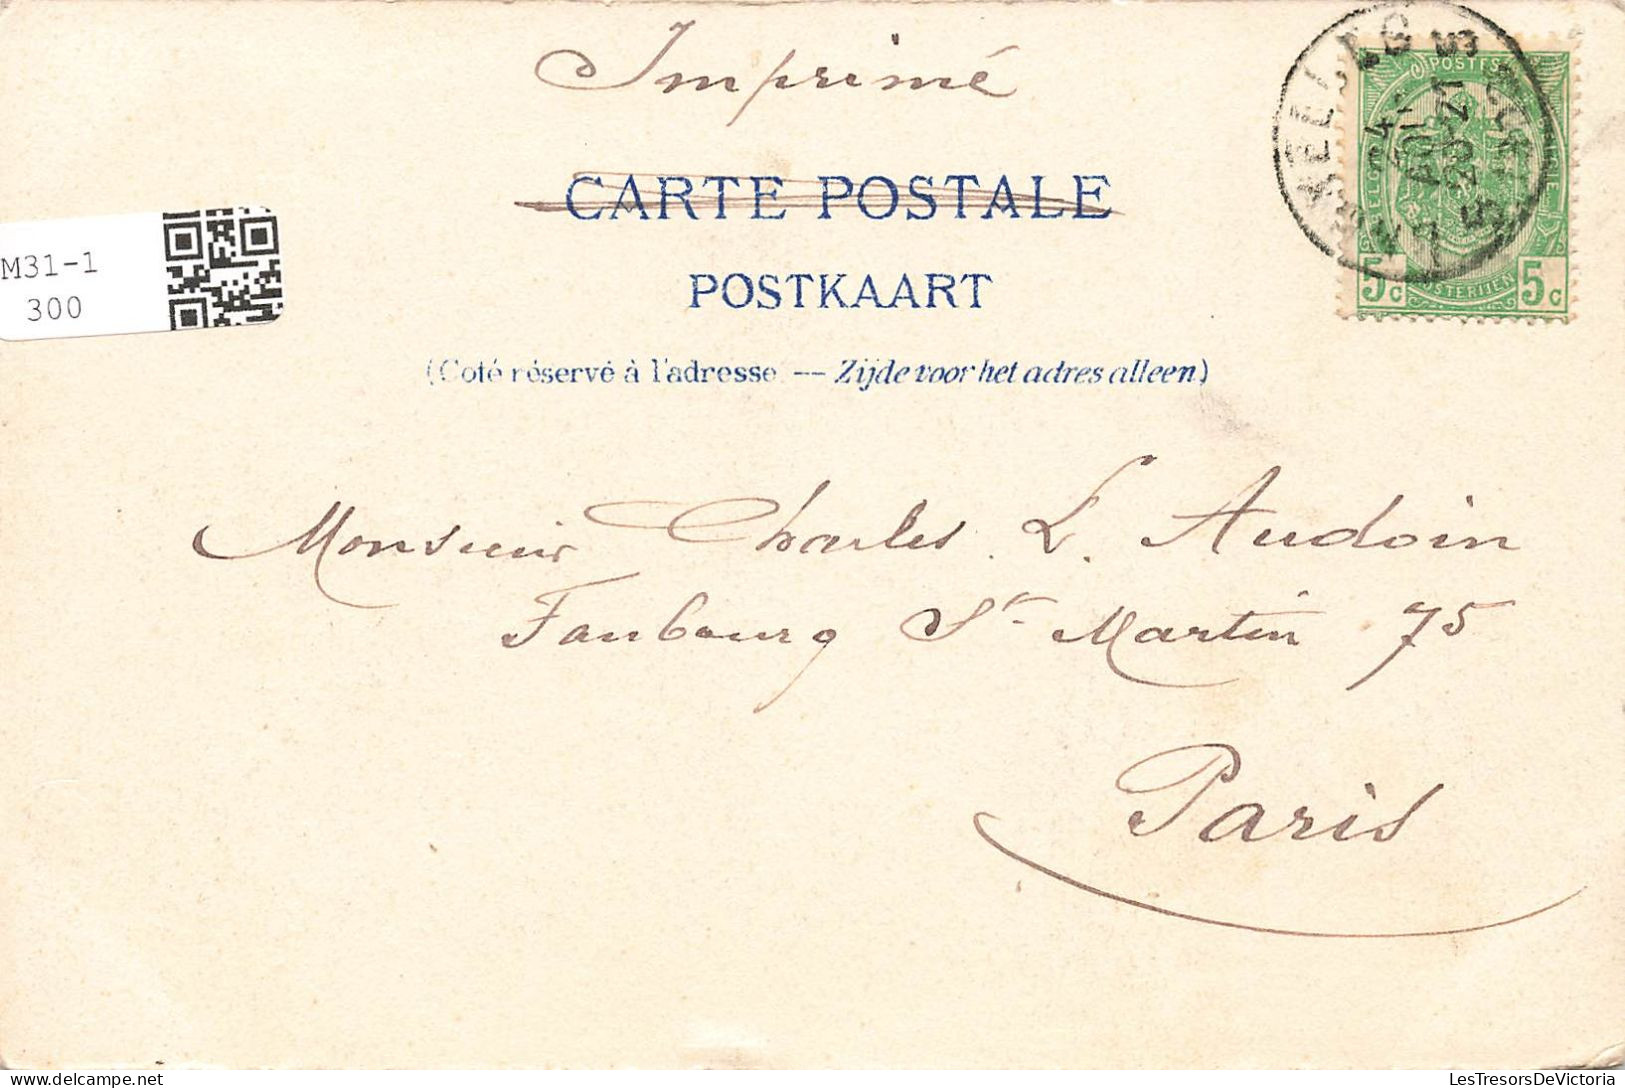 Imprimé
CARTE POSTALE
POSTKAART
(Coté réservé à l'adresse. — Zijde voor het adres alleen)
M31-1
300
POSTES
5c 5c
Monsieur Charles L. Audoin
Faubourg St Martin 75
Paris
LesTresorsDeVictoria